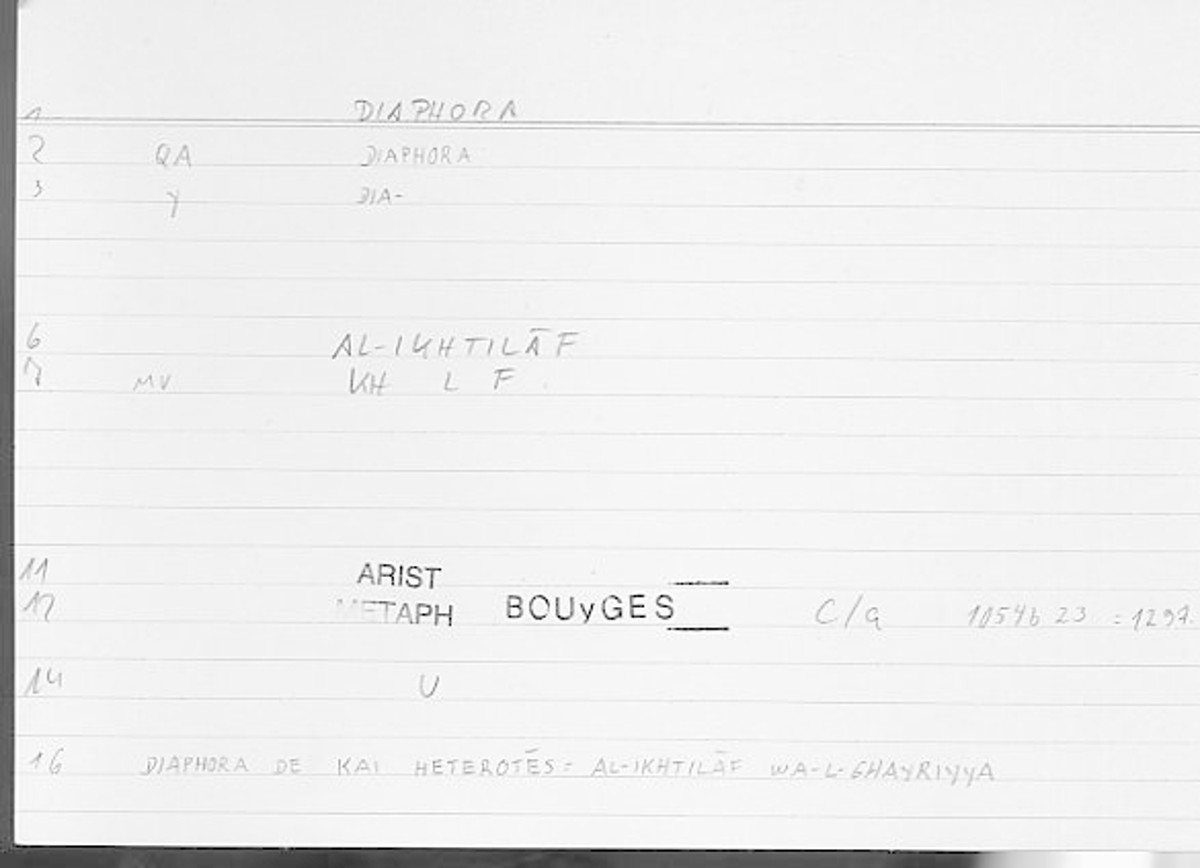 1 DIAPHORA
2 QA DIAPHORA
3 Y DIA-
6 AL-IKHTILĀF
7 MV KH L F
11 ARIST
12 METAPH BOUyGES C/a 1054b 23 = 1297.
14 U
16 DIAPHORA DE KAI HETEROTĒS = AL-IKHTILĀF WA-L-GHAYRIYYA